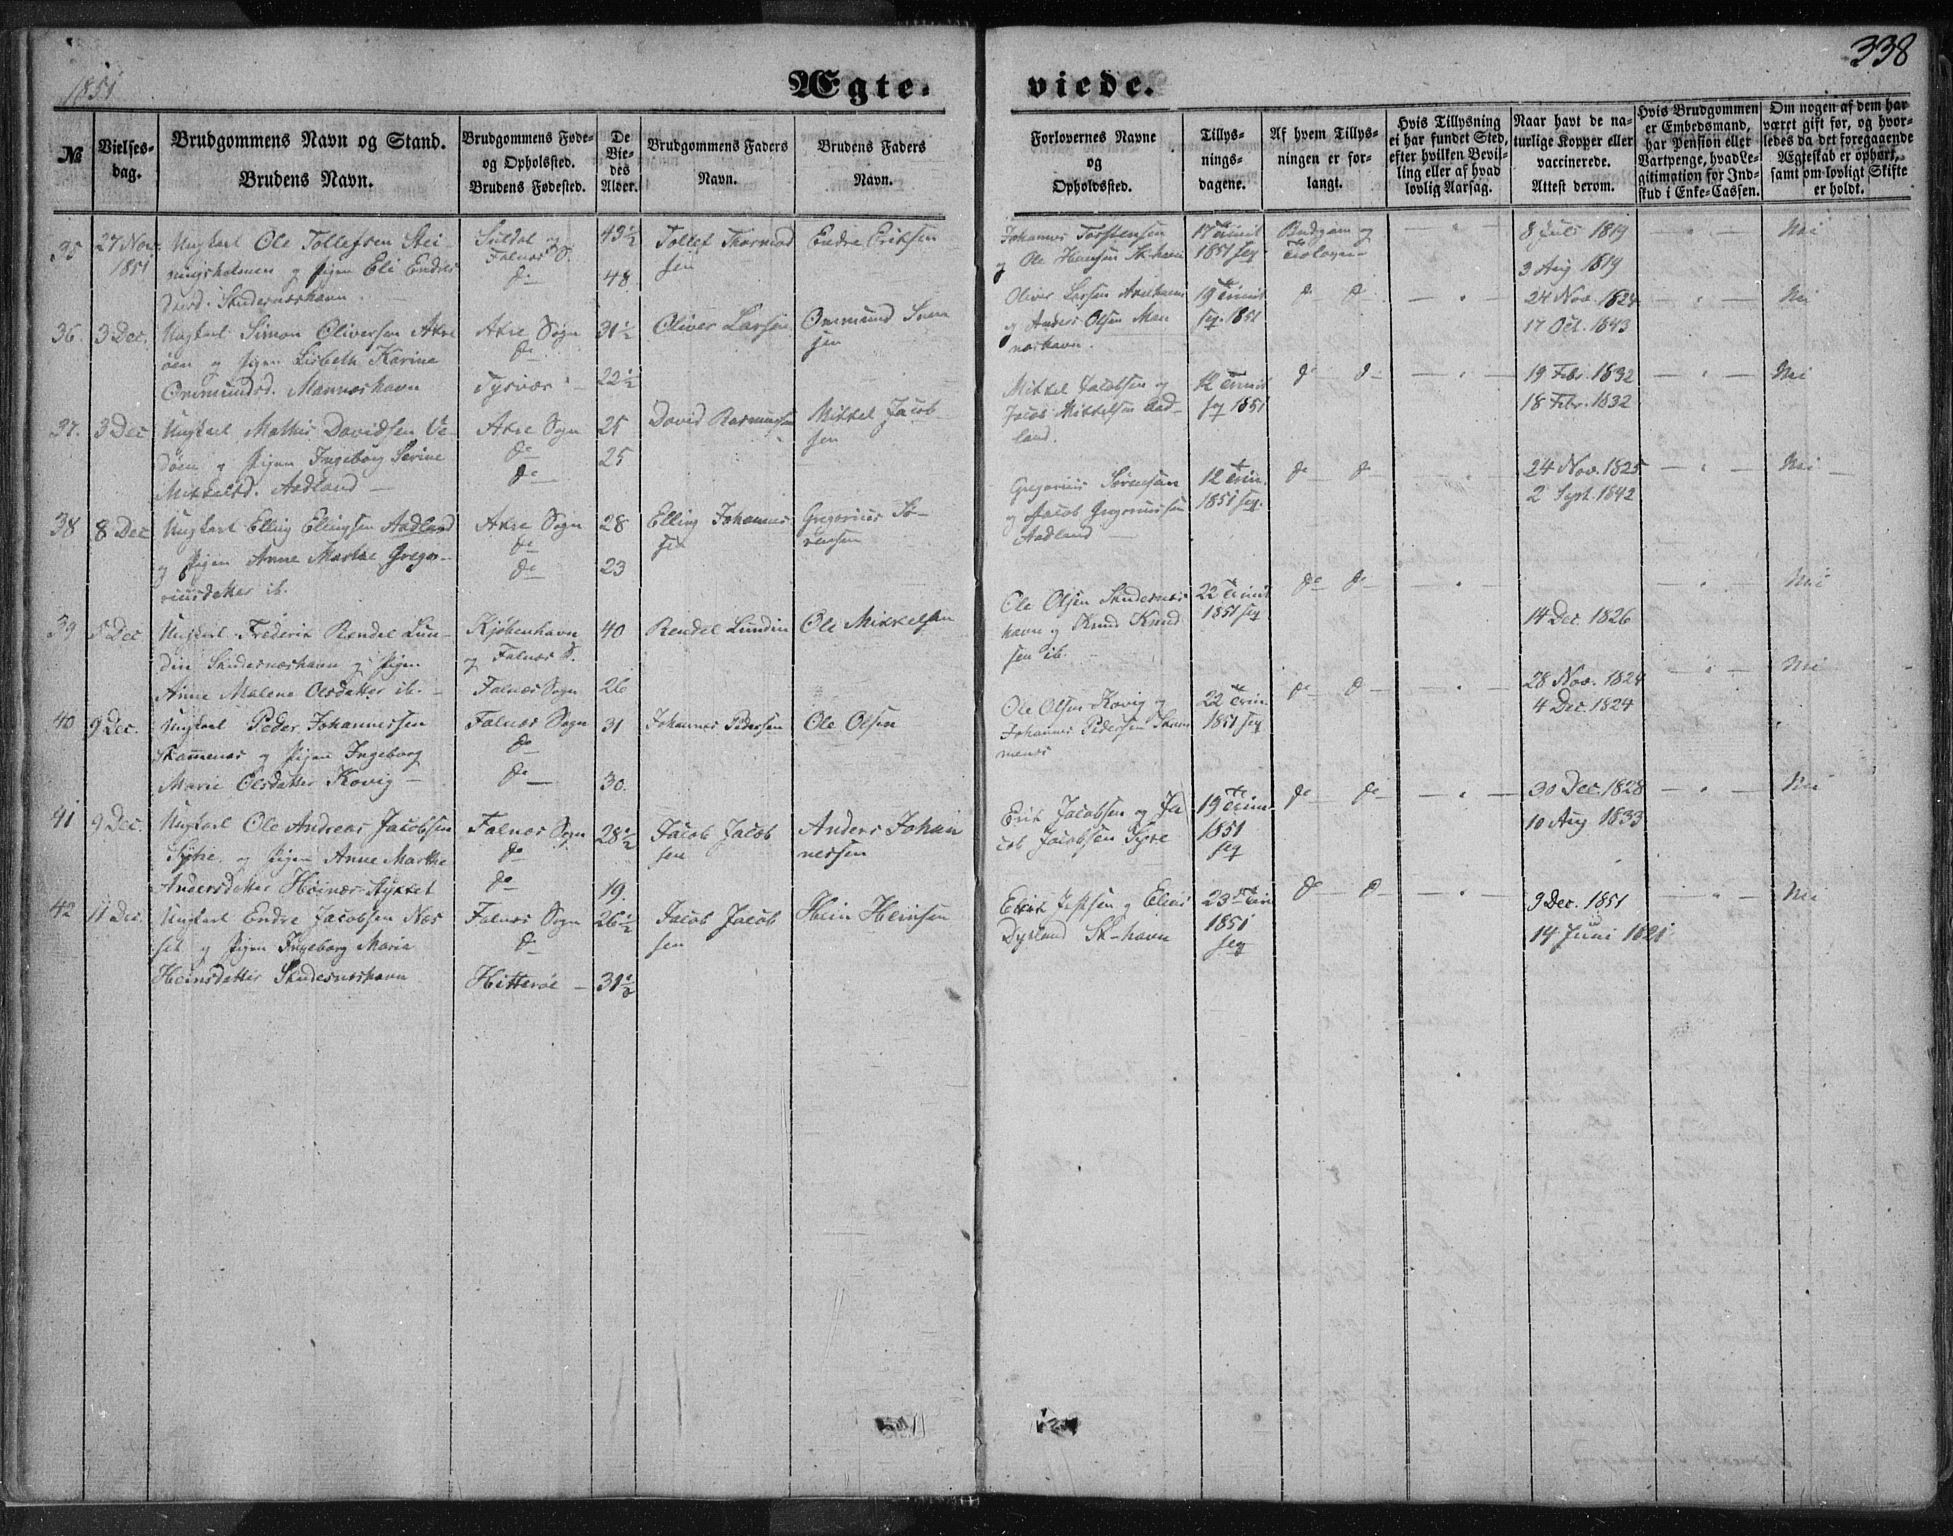 338
1851
Ægte- viede.
№
Vielses-
dag.
Brudgommens Navn og Stand.
Brudens Navn.
Brudgommens Føde-
og Opholdssted.
Brudens Fødested.
De
Vie-
des
Alder.
Brudgommens Faders
Navn.
Brudens Faders
Navn.
Forlovernes Navne
og
Opholdssted.
Tillys-
nings-
dagene.
Af hvem Tillys-
ningen er for-
langt.
Hvis Tillysning
ei har fundet Sted,
efter hvilken Bevil-
ling eller af hvad
lovlig Aarsag.
Naar havt de na-
turlige Kopper eller
vaccinerede.
Attest derom.
Hvis Brudgommen
er Embedsmand,
har Pension eller
Vartpenge, hvad Le-
gitimation for Ind-
skud i Enke-Cassen.
Om nogen af dem har
været gift før, og hvor-
ledes da det foregaaende
Ægteskab er ophørt,
samt om lovligt Skifte
er holdt.
35
27 Nov.
1851
Ungkarl Ole Tollefsen Stei-
ningsholmen og Pigen Eli Endres
datt. Skudesnæshavn
Suldal og
Falnæs S.
do
49½
48
Tollef Thormod
sen
Endre Eriksen
Johannes Torstensen
og Ole Hansen Sk-havn
17 Trinit
1851 seq
Brudgom og
8 Juli 1819
3 Aug 1819
Nei
36.
3 Dec.
Ungkarl Simon Oliversen Akre
øen og Pigen Lisbeth Karine
Ommundsd. Mannæshavn
Akre Sogn
do
Tysvær
31½
22½
Oliver Larsen
Ommund Svend
sen
Oliver Larsen
og Anders Olsen Man
næshavn.
19 Trinit
seq. 1851
do do
24 Nov. 1824
17 Oct. 1843
Nei
37.
3 Dec
Ungkarl Mathis Davidsen Ve-
døen og Pigen Ingeborg Serine
Mikkelsd. Aadland
Akre Sogn
do
do
25
25
David Rasmussen
Mikkel Jacob-
sen
Mikkel Jacobsen og
Jacob Mikkelsen Aad-
land.
12 Trinit
seq 1851
do do
19 Febr. 1832
18 Febr. 1832
Nei
38
8 Dec
Ungkarl Elling Ellingsen Aadland
og Pigen Anne Marthe Gregor-
riusdatter ib.
Akre Sogn
do
do
28
23
Elling Johannes
sen
Gregorius Sø-
rensen
Gregorius Sørensen
og Jacob Gregoriussen
Aadland
12 Trin.
1851 seq.
do do
24 Nov. 1825
2 Sept. 1842
Nei
39
5 Dec
Ungkarl Frederik Rendel Lun-
din Skudesnæshavn og Pigen
Anne Malene Olsdatter ib.
Kjøbenhavn
og Falnæs S.
Falnæs Sogn
40
26
Rendel Lundin
Ole Mikkelsen
Ole Olsen Skudesnæs
havn og Knud Knud
sen ib.
22 Trinit
1851 seq
do do
14 Dec. 1826
Nei
40
9 Dec.
Ungkarl Peder Johannessen
Stamnenæs og Pigen Ingeborg
Marie Olsdatter Kovig
Falnæs Sogn
do
do
31
30.
Johannes Pedersen
Ole Olsen
Ole Olsen Kovig og
Johannes Pedersen Stam
nenæs
22 Trin
1851 seq
do do
28 Nov. 1824
4 Dec. 1824
Nei
41
9 Dec.
Ungkarl Ole Andreas Jacobsen
Syre og Pigen Anne Marthe
Andersdatter Høinæs
Falnæs Sogn
do
do
28½
19.
Jacob Jacob
sen
Anders Johan
nessen
Erik Jacobsen og Ja
cob Jacobsen Syre
19 Trin.
1851
seq
do do
30 Dec. 1828
10 Aug 1833
Nei
42
11 Dec.
Ungkarl Endre Jacobsen Næs
set og Pigen Ingeborg Maria
Heinsdatter Skudesnæshavn
Falnæs Sogn
do
Hitterøe
26½
31½
Jacob Jacob
sen
Hein Heinsen
og Elias
Dyrland Sk-havn
23 Trin
1851
seq
do do
9 Dec. 1851
14 Juni 1821
Nei